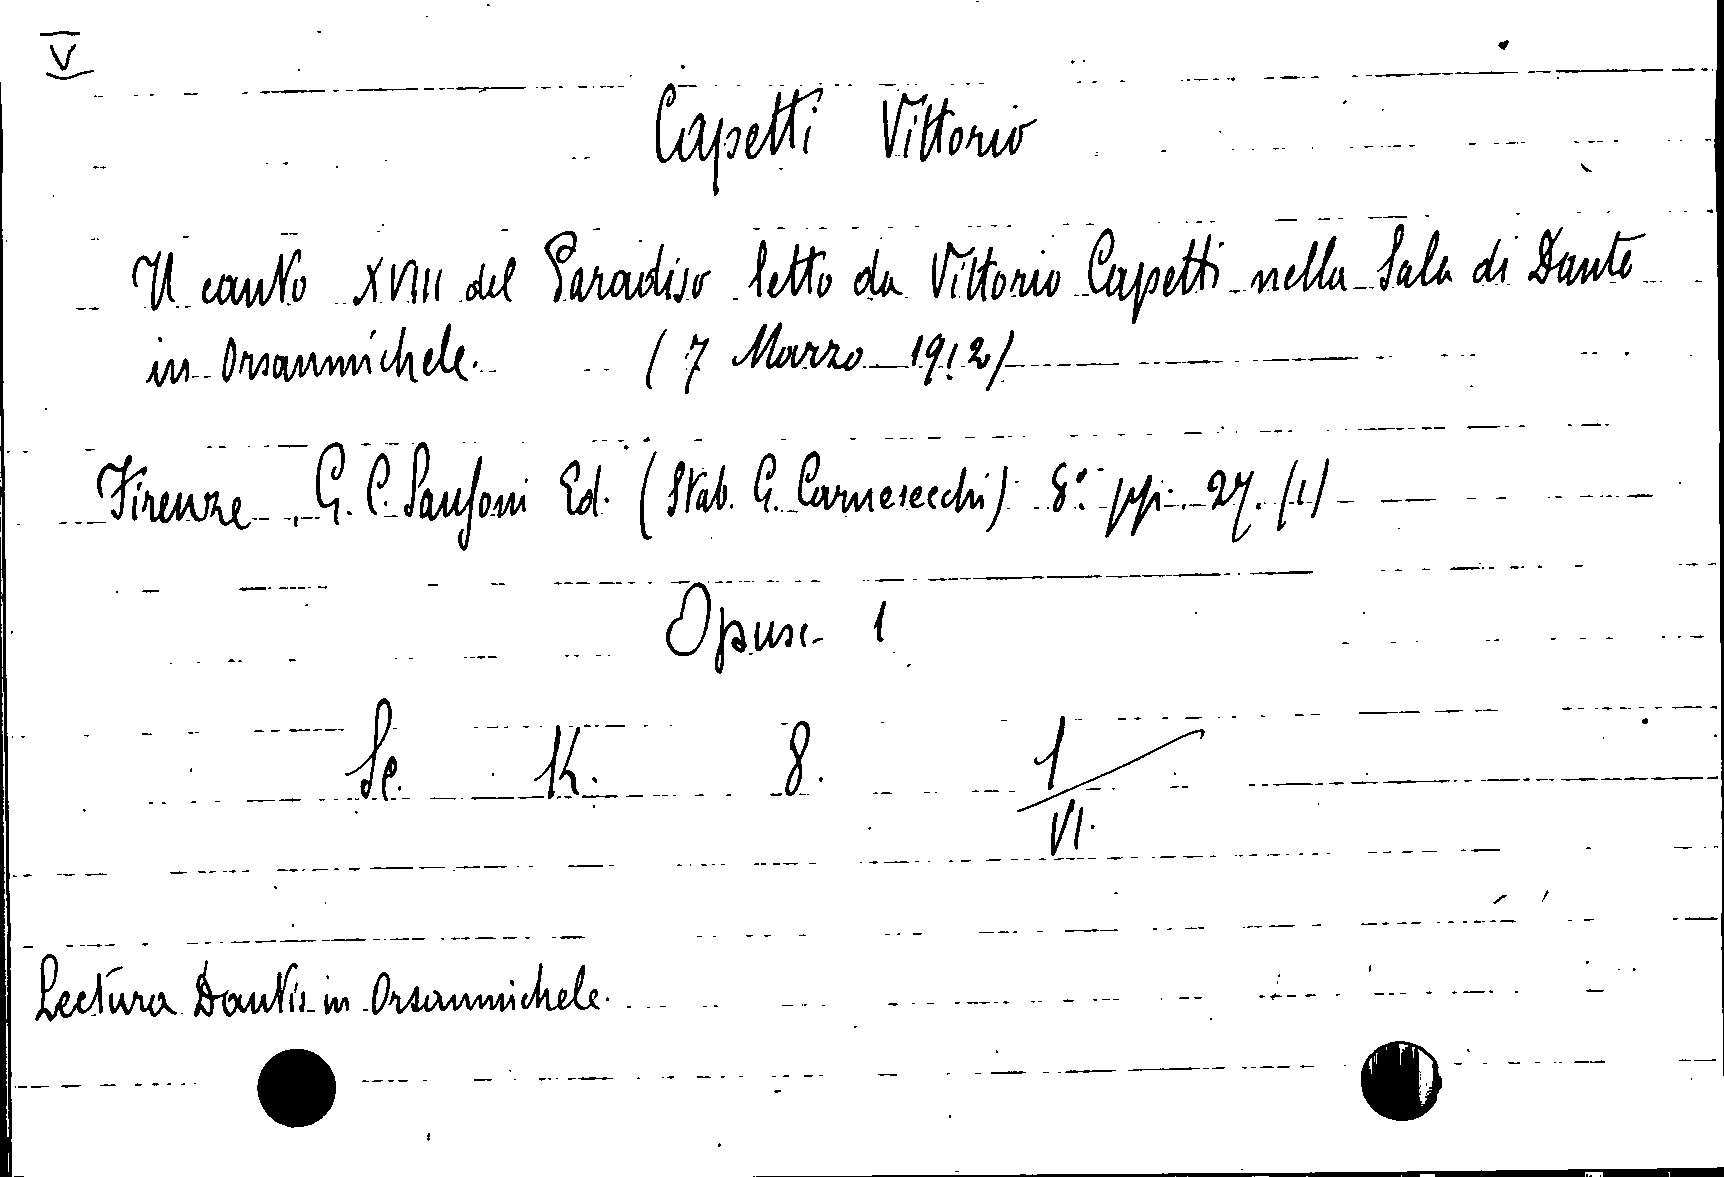 V
Capetti Vittorio
Il canto XVIII del Paradiso letto da Vittorio Capetti nella Sala di Dante
in Orsanmichele. (7 Marzo 1912)
Firenze, G. C. Sansoni Ed. (Stab. G. Carnesecchi) 8.° pp. 27. (1)
Opusc. 1
Sc. K. 8. 1/VI.
Lectura Dantis in Orsanmichele.